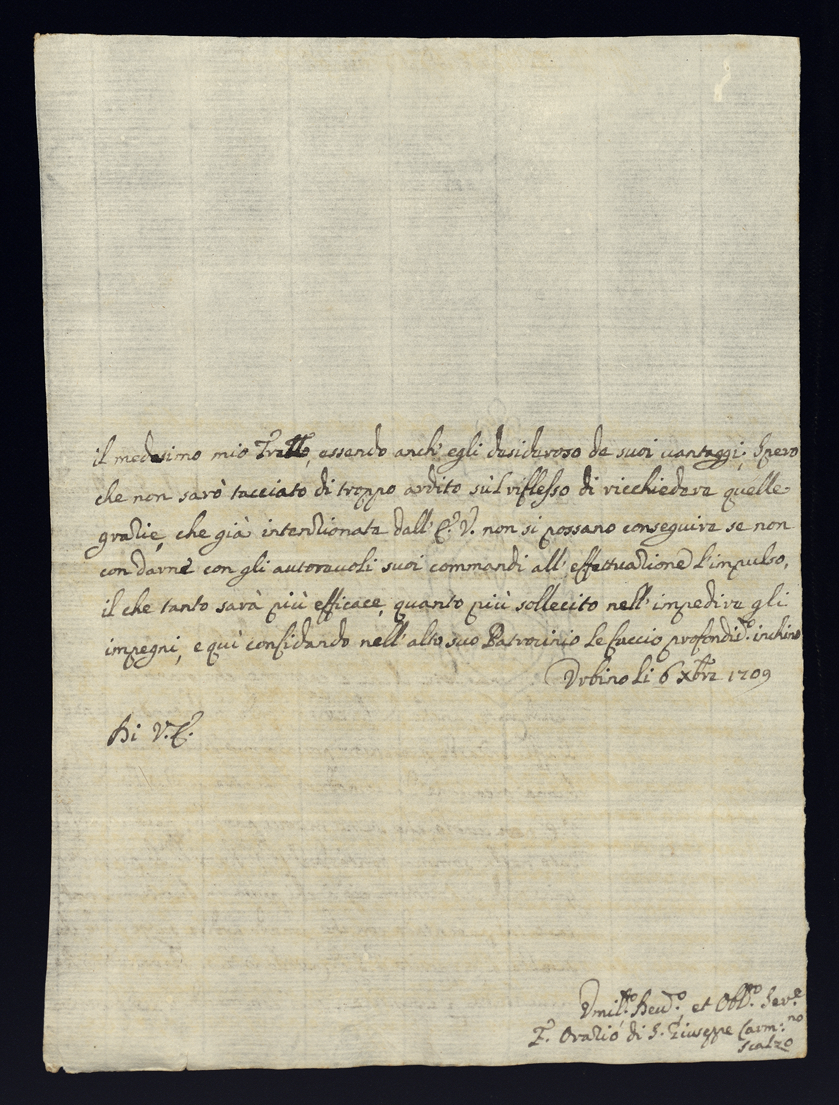 il medesimo mio Fratt.o, essendo anch' egli desideroso de suoi vantaggi; Spero
che non sarò tacciato di troppo ardito sul riflesso di ricchiedere quelle
grazie, che già intenzionate dall' E.a V. non si possano conseguire se non
con darne con gli autorevoli suoi commandi all' effettuazione l'impulso,
il che tanto sarà più efficace, quanto più sollecito nell' impedire gli
impegni, e quì confidando nell' alto suo Patrocinio le faccio profondis.o inchino
Urbino li 6 Xbre 1709
Di V. E.
Umil.mo Dev.o, et Obl.mo Ser.e
F. Orazio di S. Giuseppe Carm.no
Scalzo